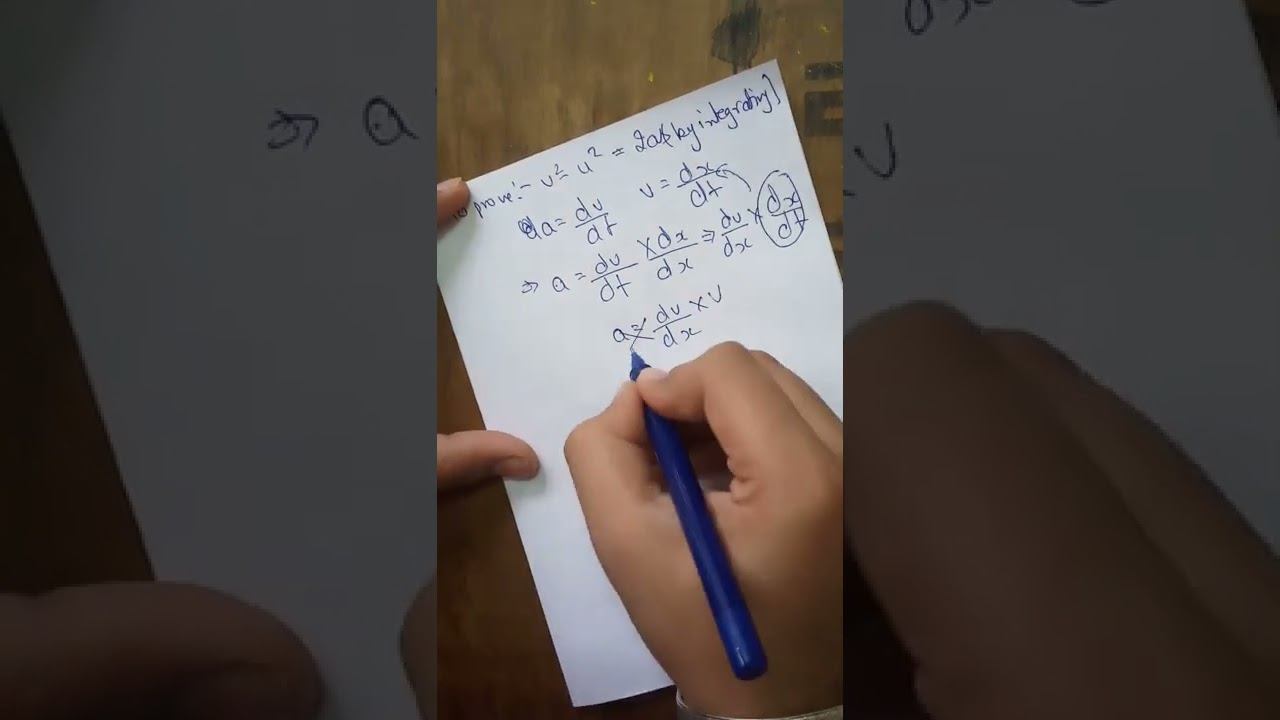 To prove:- v² - u² = 2as [by integrating]
a = dv/dt v = dx/dt
⇒ a = dv/dt × dx/dx ⇒ dv/dx × dx/dt
a = dv/dx × v